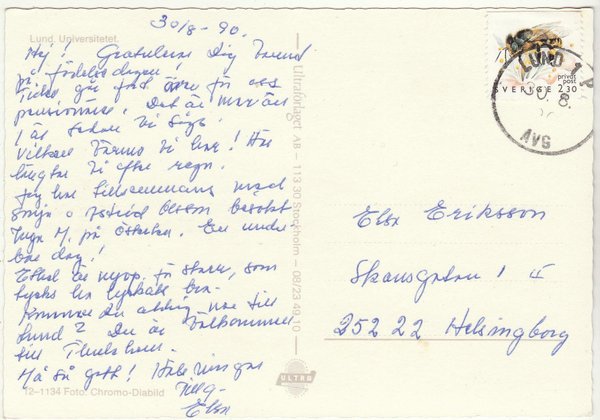 30/8-90.
Lund. Universitetet.
Hej! Gratulerar Dig
på födelsedagen!
Tiden går fort även för oss
pensionärer. Det är mer än
1 år sedan vi sågs.
Vilken värme vi har! Här
längtar vi efter regn.
Jag har tillsammans med
o Astrid Olsson besökt
M. på Österlen. En under-
bar dag!
är nyop. för starr, som
tycks ha lyckats bra.
Kommer Du aldrig mer till
Lund? Du är välkommen
till
Må så gott! Hälsningar
Elsa
12-1134 Foto: Chromo-Diabild
Ultraförlaget AB - 113 30 Stockholm - 08/23 49 10
ULTRA
LUND 1
8.
AVG
privat
post
SVERIGE 2.30
Elsa Eriksson
Skansgatan 1 II
252 22 Helsingborg